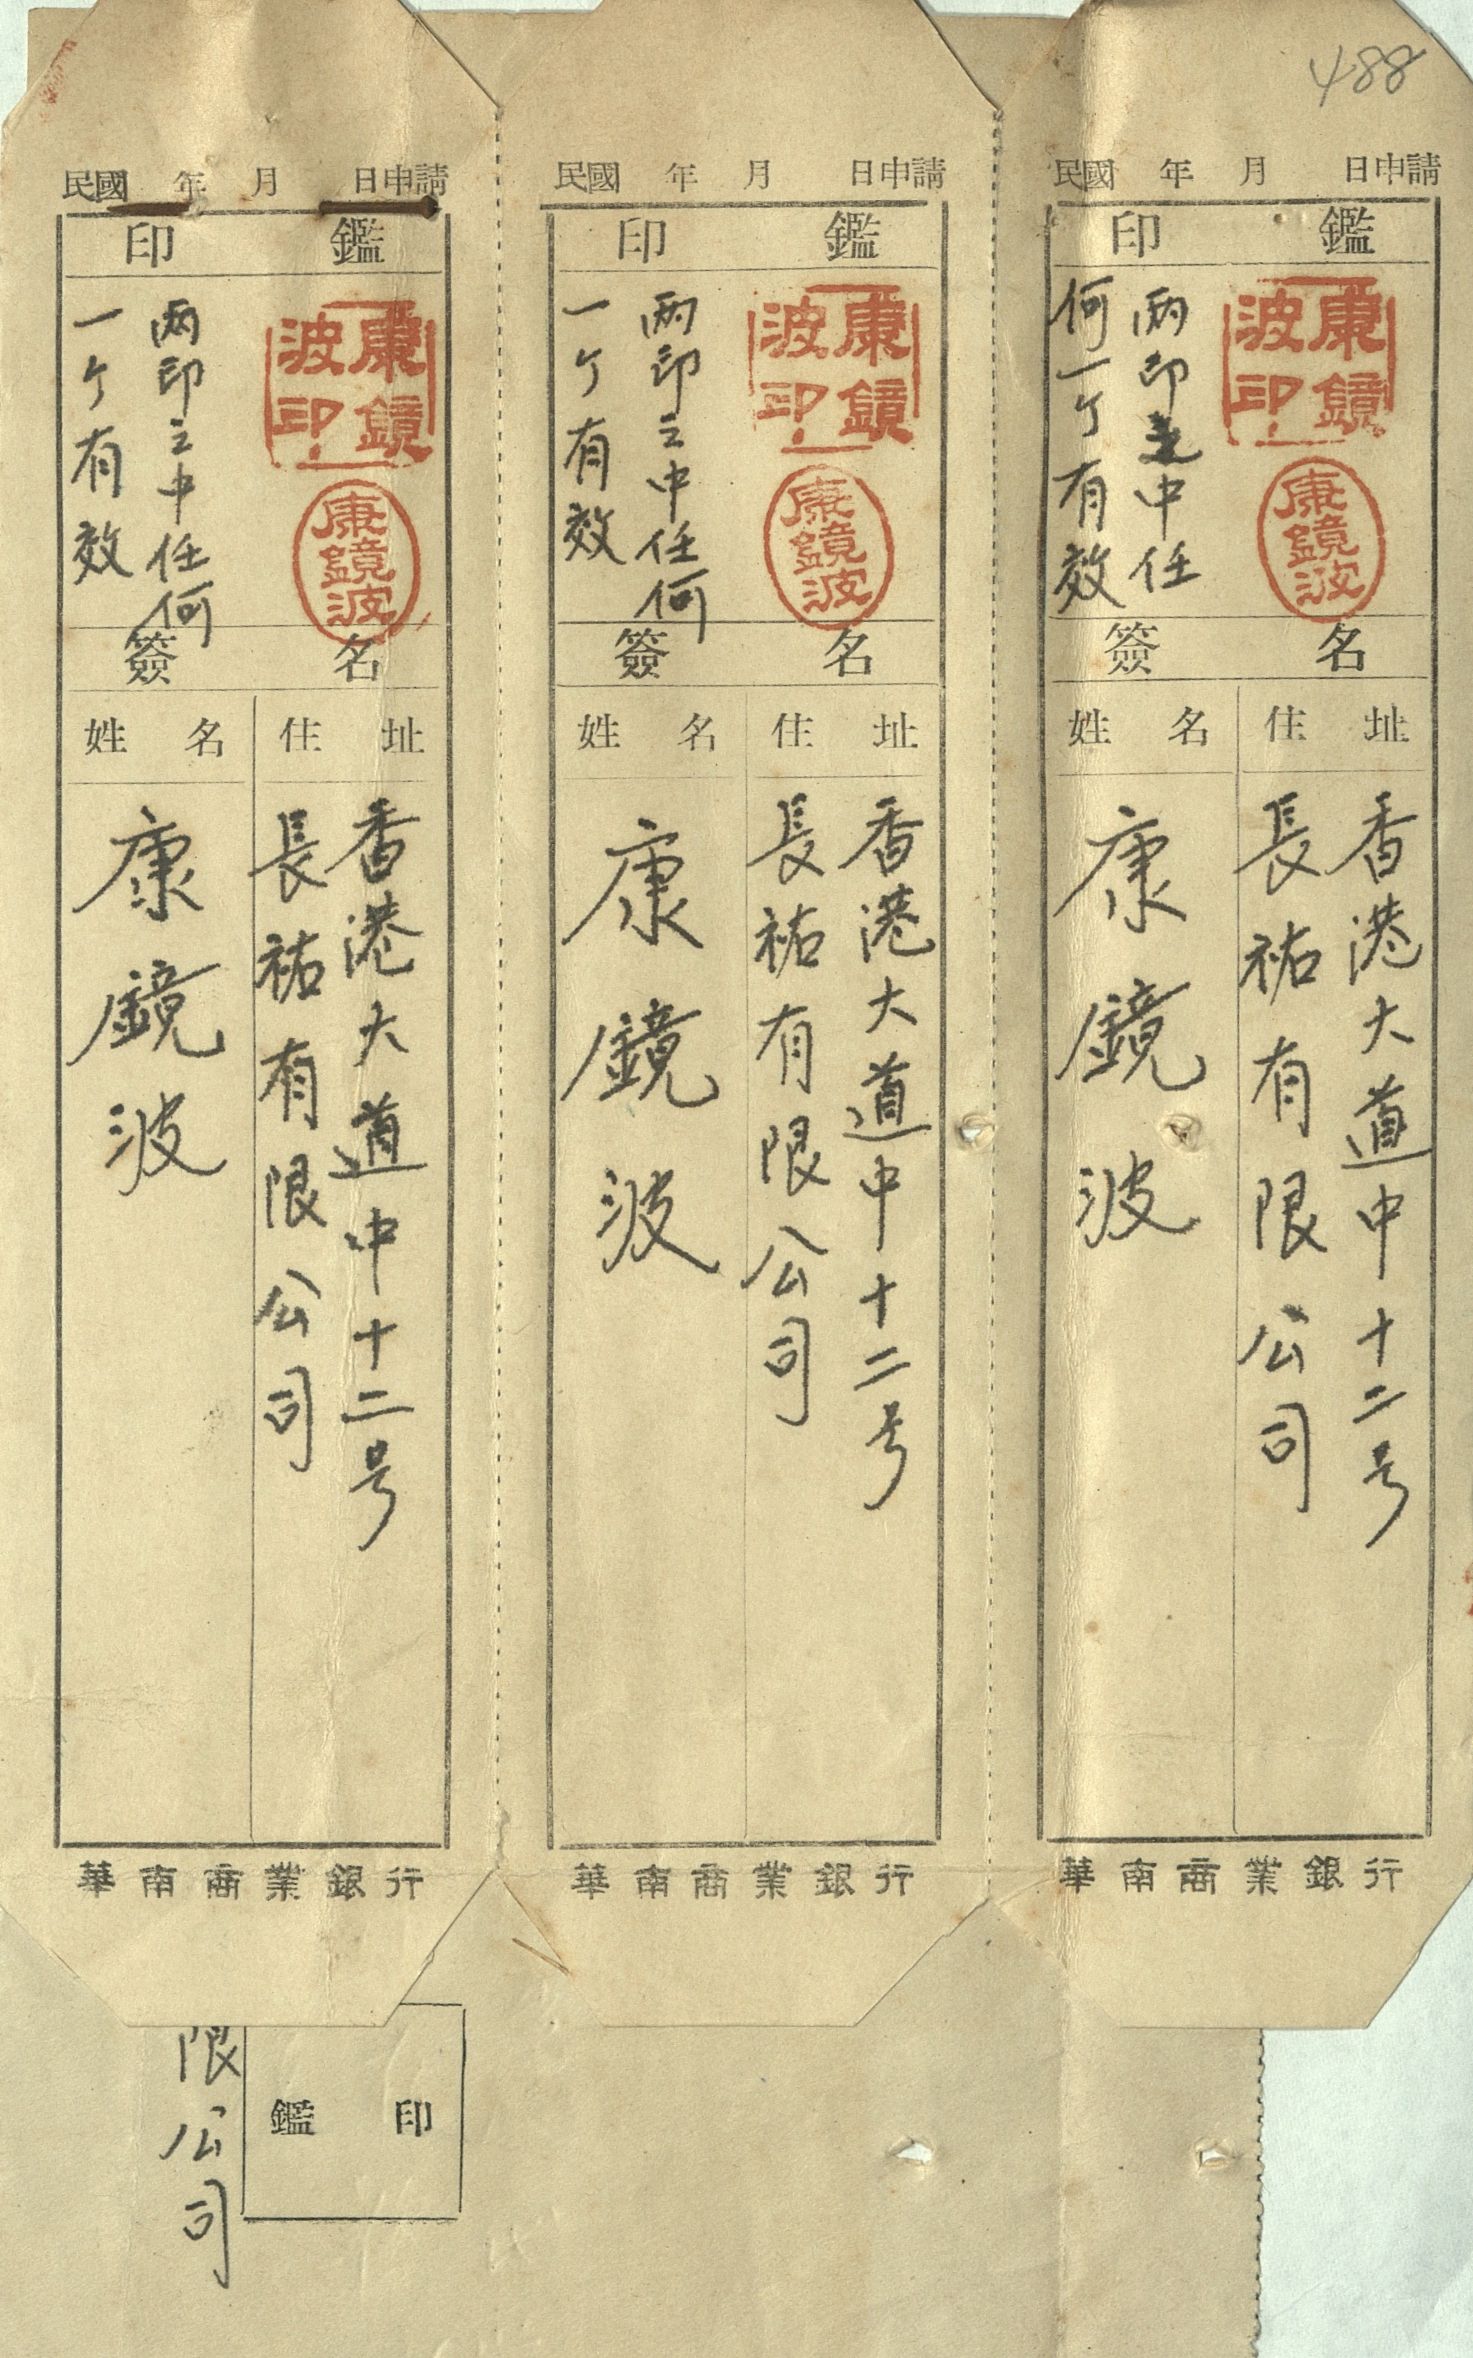 488
民國 年 月 日申請
印 鑑
康鏡波印
康鏡波
兩印之中任何
一个有效
簽 名
姓 名 住 址
香港大道中十二号
長祐有限公司
康鏡波
華南商業銀行
民國 年 月 日申請
印 鑑
康鏡波印
康鏡波
兩印之中任何
一个有效
簽 名
姓 名 住 址
香港大道中十二号
長祐有限公司
康鏡波
華南商業銀行
民國 年 月 日申請
印 鑑
康鏡波印
康鏡波
兩印之中任
何一个有效
簽 名
姓 名 住 址
香港大道中十二号
長祐有限公司
康鏡波
華南商業銀行
限公司
鑑 印